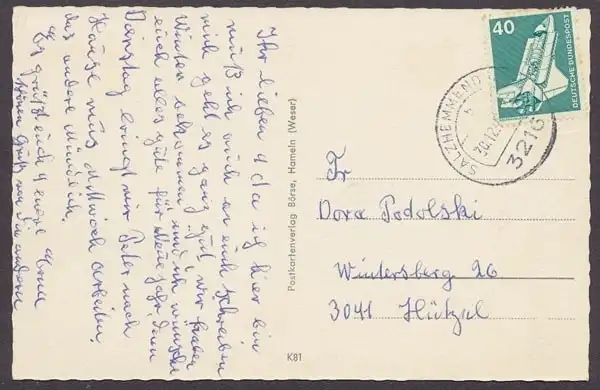 Ihr lieben 4 da ich hier bin
muß ich auch an euch schreiben
mir geht es ganz gut, wir haben
Winter bekommen, und ich wünsche
euch alles gute für Neue Jahr, den
Dienstag bringt mir Peter nach
Hause muß Mittwoch arbeiten,
das andere mündlich.
Es grüßt euch 4 eure Oma
schönen Gruß von die andern
Postkartenverlag Börse, Hameln (Weser)
K81
40
DEUTSCHE BUNDESPOST
SALZHEMMENDORF
30.12.
3216
Fr
Dora Podolski
Wintersberg 26
3041 Hützel